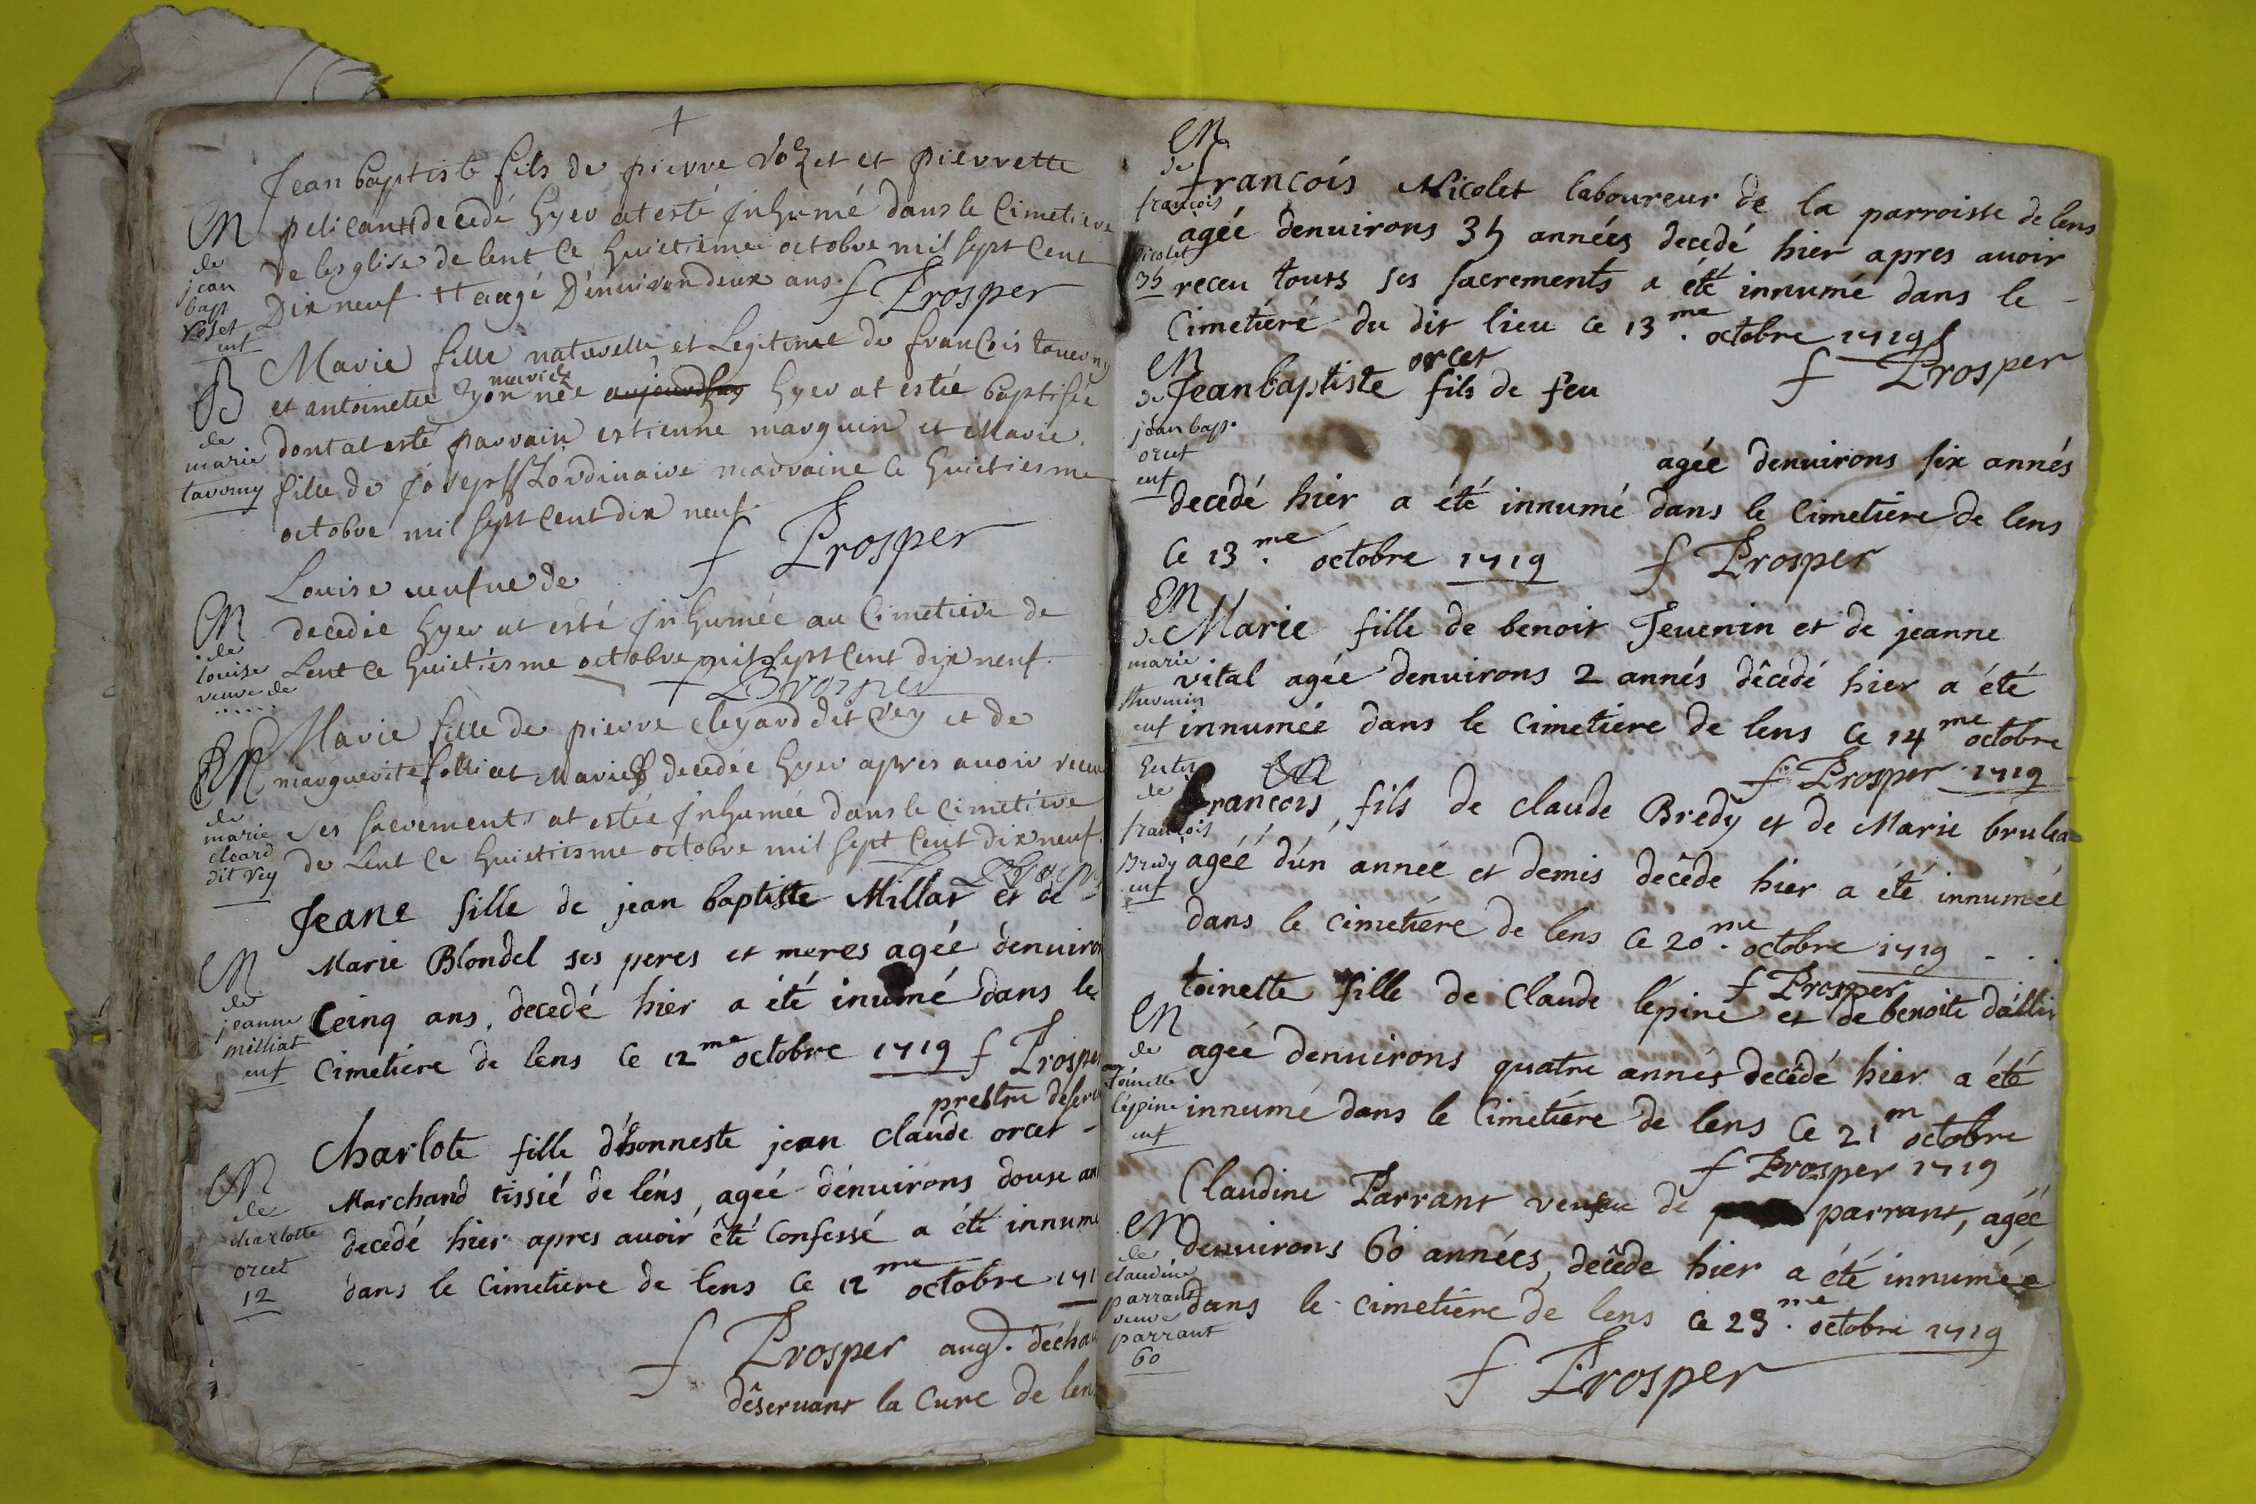 Jean baptiste fils de pierre rozet et pierrette
M pelicant decedé hyer at esté inhumé dans le Cimetiere
de
jean
bap
roset
enf
de lesglise de lent Ce huictieme octobre mil sept Cent
Dix neuf aagé Denuiron deux ans f Prosper
B
de
marie
taverny
Marie fille naturelle et Legitime de francois taverny
et antoinette yon née aujourdhuy hyer at estée baptisée
mariés
dont at esté parrain estienne marguin et Marie
fille de joseph Lordinaire marraine Ce huictiesme
octobre mil sept Cent dix neuf
f Prosper
M
de
Louise
veuve de
.....
Louise ueufue de
decedée hyer at esté inhumée au Cimetiere de
Lent Ce huictiesme octobre mil sept Cent dix neuf
f Prosper
M
de
marie
cleard
dit vey
Marie fille de pierre cleyard dit vey et de
marguerite decedée hyer apres auoir receu
ses sacrements at estée inhumée dans le cimetiere
de Lent Ce huictiesme octobre mil sept Cent dix neuf
f Prosper
M
de
jeanne
milliat
enf
Jeane fille de jean baptiste Millat et de
Marie Blondel ses peres et meres agée denuiron
Ceinq ans, decedé hier a été inumé dans le
Cimetiére de lens Ce 12me octobre 1719 f Prosper
prestre deseru
M
de
charlotte
orcet
12
Charlote fille d'honneste jean claude orcet
Marchand tissié de léns, agée dénuirons douse an
decedé hier apres auoir été Confessé a été innumé
dans le Cimetiere de lens Ce 12me octobre 171
f Prosper aug. déchau
déseruant la Cure de len
M
de
francois
nicolet
35
francois Nicolet laboureur de la parroisse de lens
agée denuirons 35 années decedé hier apres auoir
receu touts ses sacrements a été innumé dans le
Cimetiéré du dit lieu Ce 13me octobre 1719
f Prosper
M
de
jean bap.
orcet
enf
Jean baptiste orcet fils de feu
agée denuirons six annés
decedé hier a été innumé dans le Cimetiere de lens
Ce 13me octobre 1719 f Prosper
M
de
marie
thevenin
enf
Marie fille de benoit Teuenin et de jeanne
vital agée denuirons 2 annés décedé hier a été
innumée dans le Cimetiere de lens Ce 14me octobre
f Prosper 1719
M
de
francois
Bredy
enf
francois, fils de claude Bredy et de Marie brulea
agéé d'un année et demis decêde hier a été innumée
dans le cimetiére de lens Ce 20me octobre 1719
f Prosper
M
de
toinette
lépine
enf
toinette fille de Claude lépine et de benoite dallin
agée denuirons quatre annés decedé hier a été
innumé dans le Cimetiére de lens Ce 21m octobre
f Prosper 1719
M
de
claudine
parrant
veuve
parrant
60
Claudine Parrant veufue de parrant, agée
denuirons 60 années, decêde hier a été innumée
dans le cimetiere de lens Ce 23me octobre 1719
f Prosper